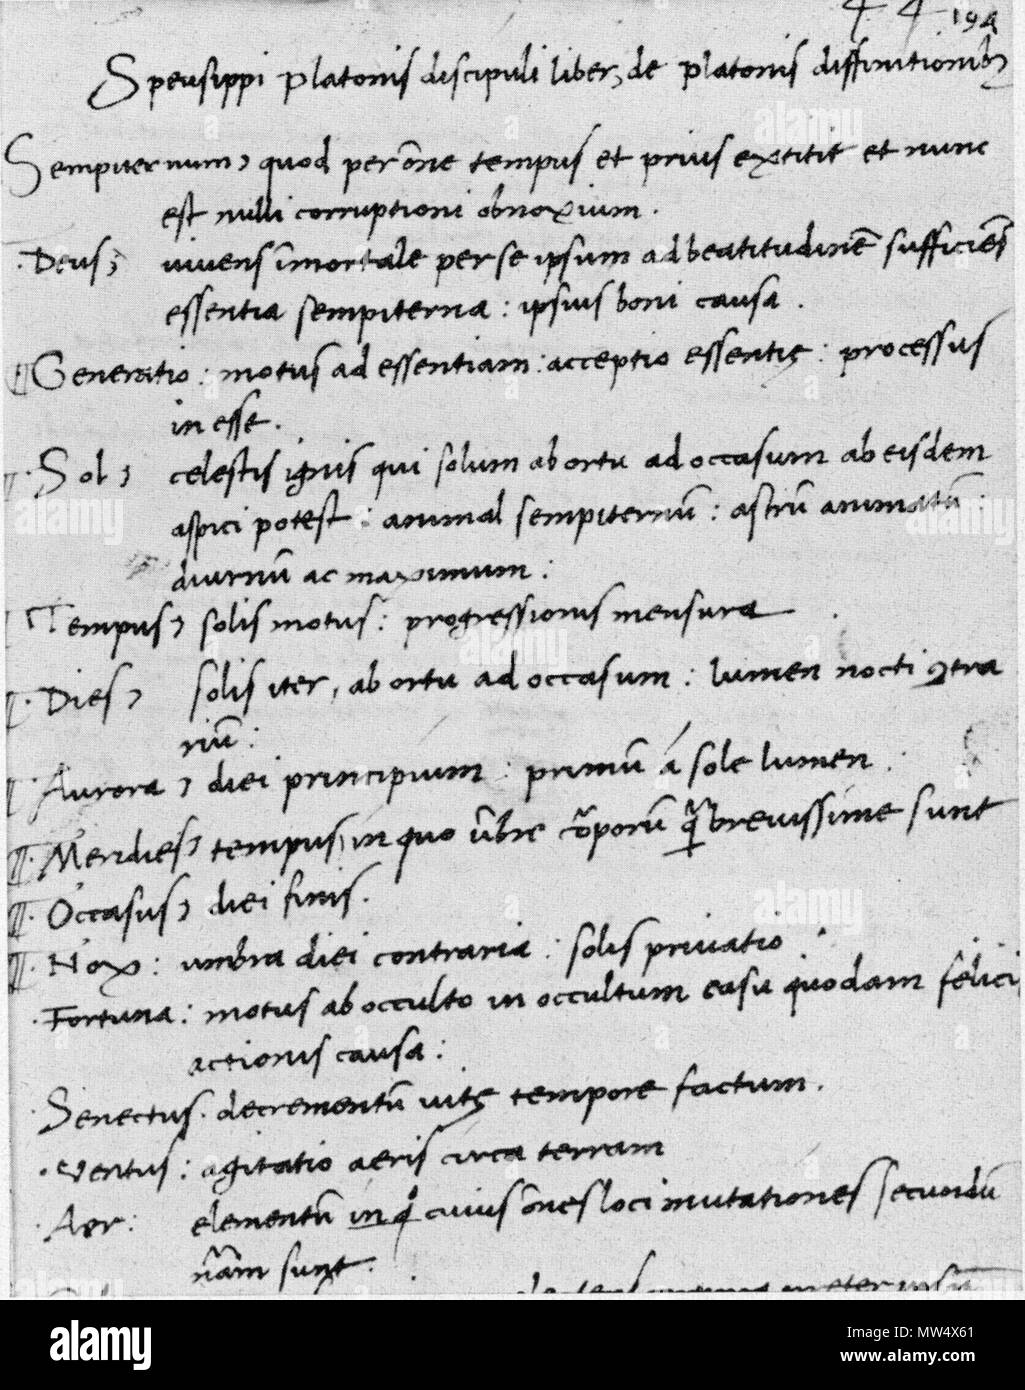 44 194
Speusippi platonis discipuli liber, de platonis diffinitionibꝫ
Sempiternum, quod per o͞ne tempus et prius extitit et nunc
est nulli corruptioni obnoxium.
Deus, vivens i͞mortale per se ipsum ad beatitudine͞ sufficie͞s
essentia sempiterna : ipsius boni causa .
¶ Generatio : motus ad essentiam : acceptio essentię : processus
in esse .
¶ · Sol, celestis ignis qui solum ab ortu ad occasum ab eisdem
aspici potest : animal sempiternu͞ : astru͞ animatu͞ :
diurnu͞ ac maximum :
¶ Tempus, solis motus : progressionis mensura
¶ · Dies, solis iter, ab ortu ad occasum : lumen nocti ꝯtra
riu͞ :
¶ · Aurora, diei principium : primu͞ á sole lumen .
¶ · Meridies, tempus, in quo u͞bre co͞poru͞ brevissime sunt
¶ · Occasus, diei finis .
¶ · Nox : umbra diei contraria : solis privatio .
· Fortuna : motus ab occulto in occultum casu quodam felici
actionis causa :
· Senectus · decrementu͞ vitę tempore factum .
· Ventus : agitatio aeris circa terram
· Aer : elementu͞ in q͛ cuius o͞nes loci mutationes secundu͞
na͞m sunt .
alamy
Image ID: MW4X61
www.alamy.com